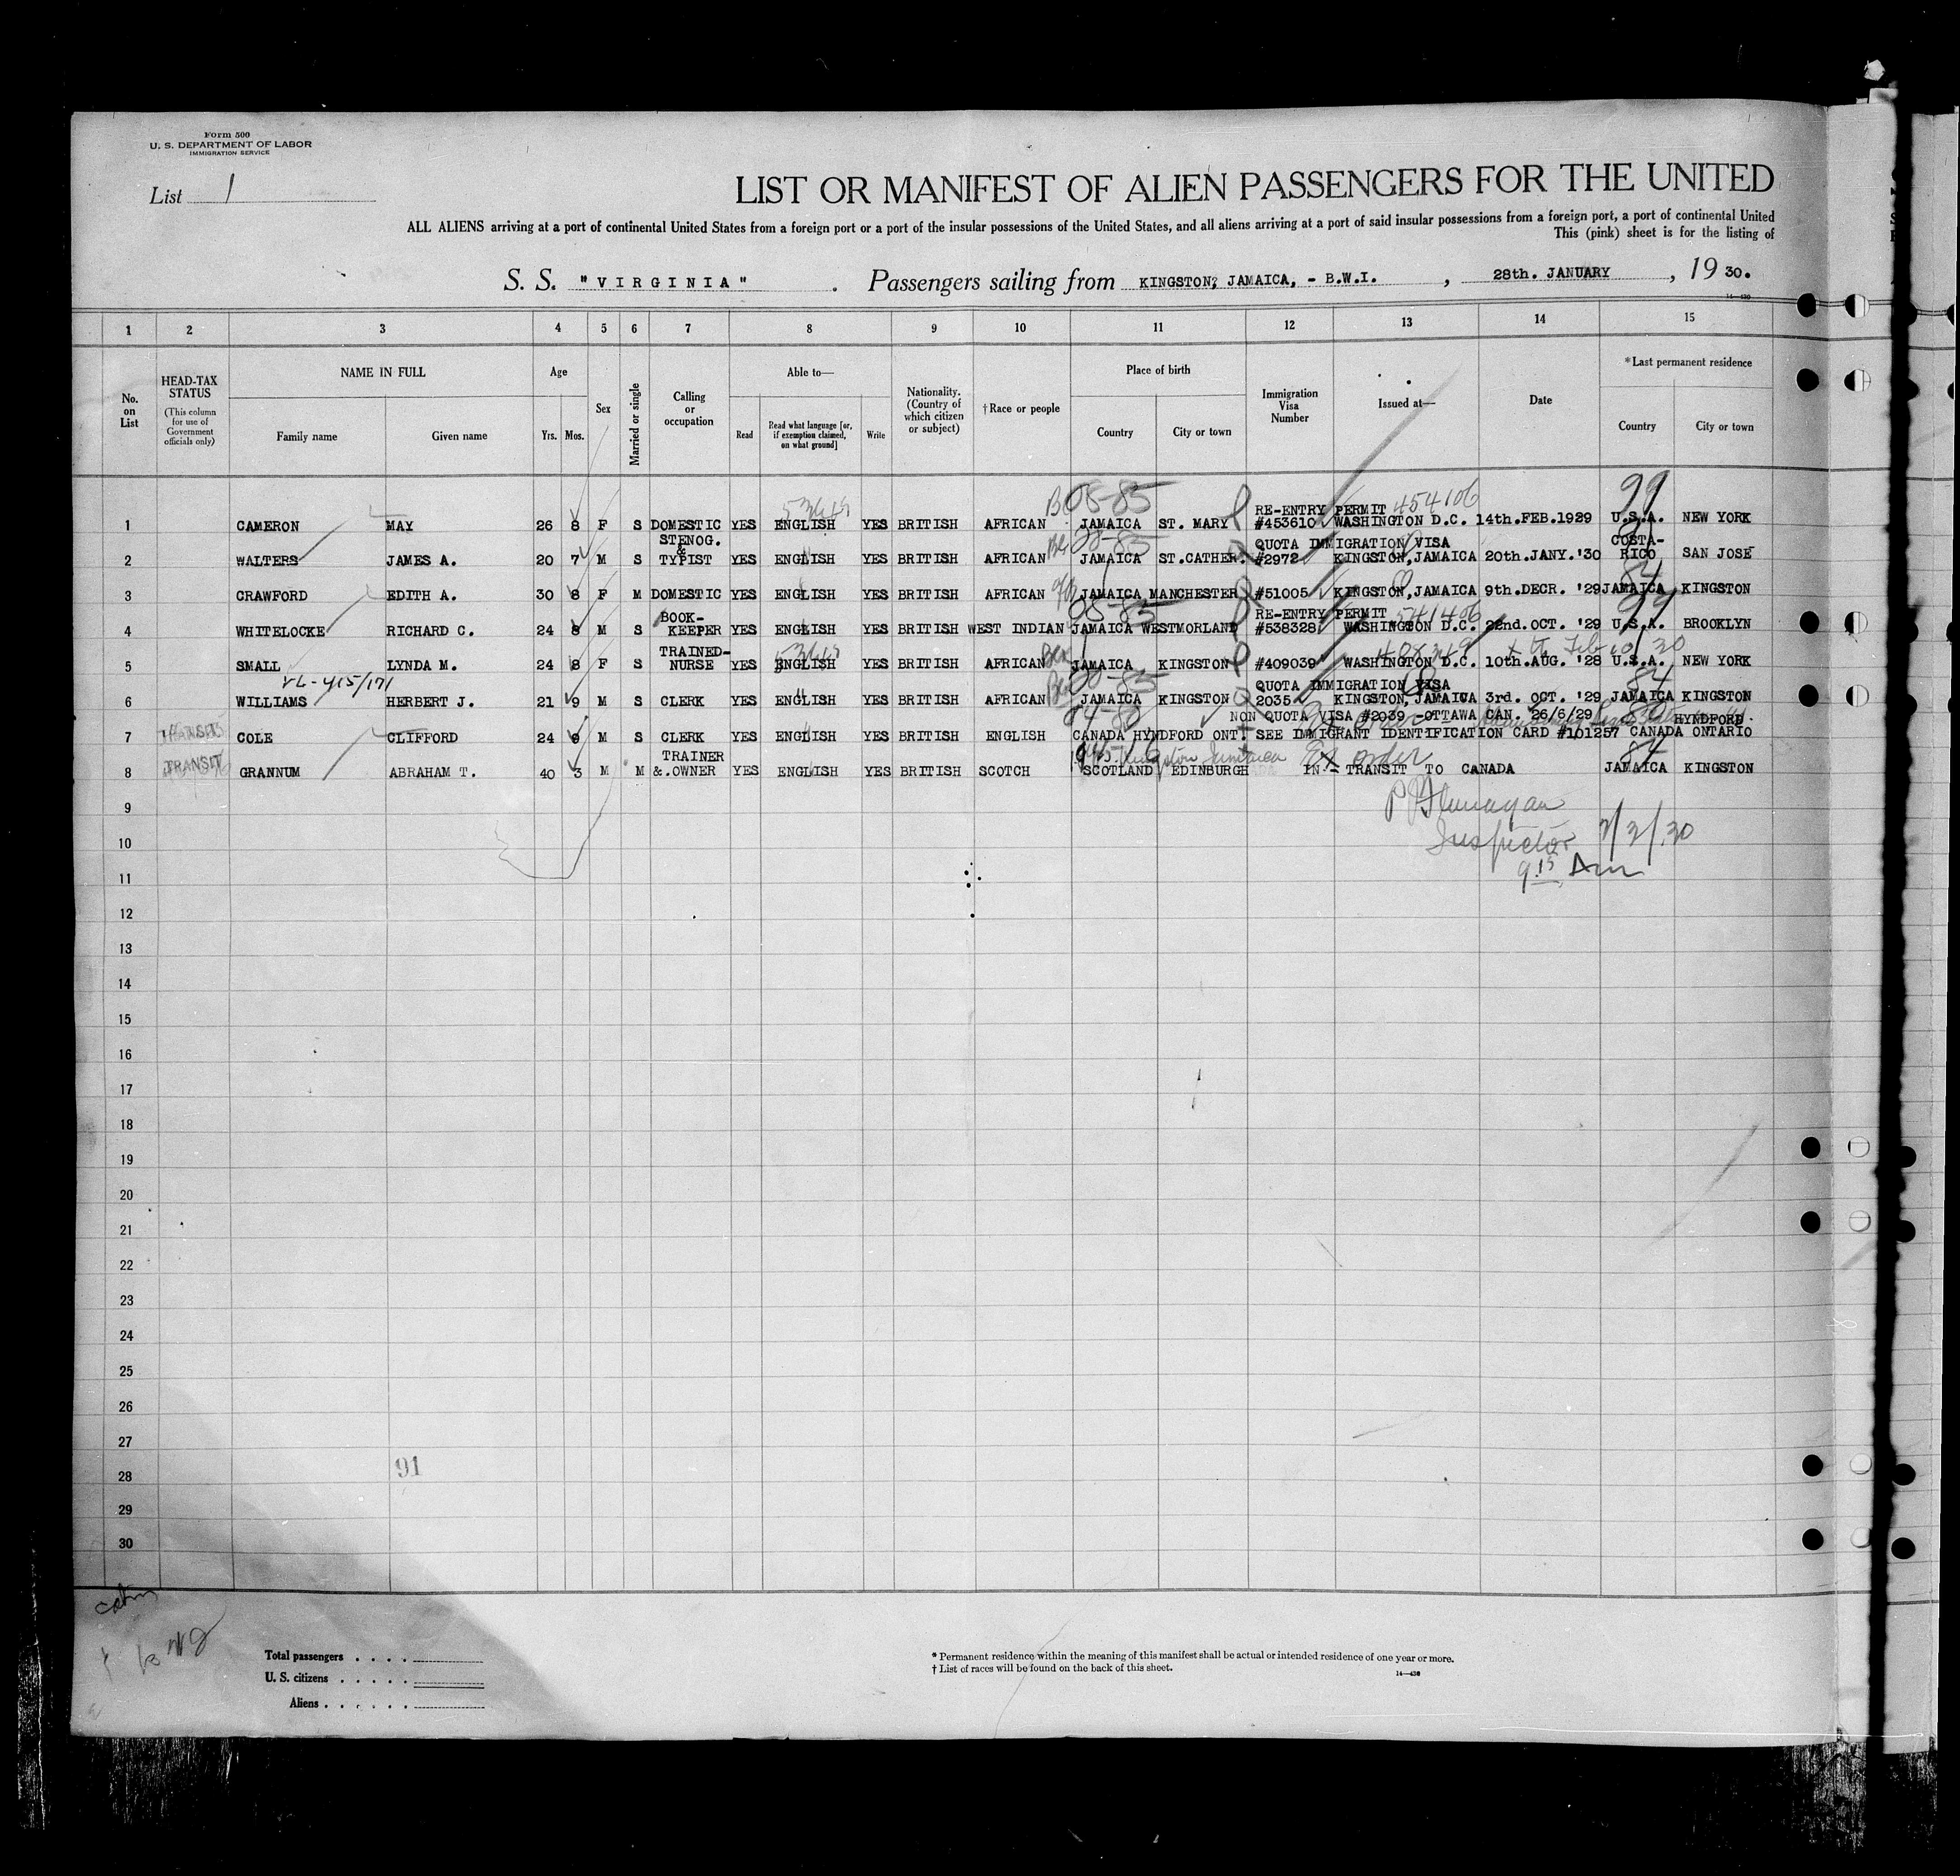 Form 500
U. S. DEPARTMENT OF LABOR
IMMIGRATION SERVICE
List 1
LIST OR MANIFEST OF ALIEN PASSENGERS FOR THE UNITED
ALL ALIENS arriving at a port of continental United States from a foreign port or a port of the insular possessions of the United States, and all aliens arriving at a port of said insular possessions from a foreign port, a port of continental United
This (pink) sheet is for the listing of
S. S. "VIRGINIA" . Passengers sailing from KINGSTON, JAMAICA, - B.W.I. , 28th. JANUARY , 19 30.
14—430
1 2 3 4 5 6 7 8 9 10 11 12 13 14 15
No. on List
HEAD-TAX STATUS (This column for use of Government officials only)
NAME IN FULL
Family name Given name
Age
Yrs. Mos.
Sex
Married or single
Calling or occupation
Able to—
Read Read what language [or, if exemption claimed, on what ground] Write
Nationality. (Country of which citizen or subject)
†Race or people
Place of birth
Country City or town
Immigration Visa Number
Issued at—
Date
*Last permanent residence
Country City or town
05-85 454106 99
RE-ENTRY PERMIT
1 CAMERON MAY 26 8 F S DOMESTIC YES ENGLISH YES BRITISH AFRICAN JAMAICA ST. MARY #453610 WASHINGTON D.C. 14th.FEB.1929 U.S.A. NEW YORK
STENOG. & QUOTA IMMIGRATION VISA COSTA-
2 WALTERS JAMES A. 20 7 M S TYPIST YES ENGLISH YES BRITISH AFRICAN JAMAICA ST.CATHER. #2972 KINGSTON,JAMAICA 20th.JANY.'30 RICO SAN JOSE
84
3 CRAWFORD EDITH A. 30 8 F M DOMESTIC YES ENGLISH YES BRITISH AFRICAN JAMAICA MANCHESTER #51005 KINGSTON,JAMAICA 9th.DECR. '29 JAMAICA KINGSTON
BOOK- 05-85 RE-ENTRY PERMIT 541406 99
4 WHITELOCKE RICHARD C. 24 8 M S KEEPER YES ENGLISH YES BRITISH WEST INDIAN JAMAICA WESTMORLAND #538328 WASHINGTON D.C. 22nd.OCT. '29 U.S.A. BROOKLYN
TRAINED-
5 SMALL LYNDA M. 24 8 F S NURSE YES ENGLISH YES BRITISH AFRICAN JAMAICA KINGSTON #409039 WASHINGTON D.C. 10th.AUG. '28 U.S.A. NEW YORK
QUOTA IMMIGRATION VISA 84
6 WILLIAMS HERBERT J. 21 9 M S CLERK YES ENGLISH YES BRITISH AFRICAN JAMAICA KINGSTON 2035 KINGSTON, JAMAICA 3rd. OCT. '29 JAMAICA KINGSTON
NON QUOTA VISA #2039 -OTTAWA CAN. 26/6/29 HYNDFORD.
7 TRANSIT COLE CLIFFORD 24 9 M S CLERK YES ENGLISH YES BRITISH ENGLISH CANADA HYNDFORD ONT. SEE IMMIGRANT IDENTIFICATION CARD #101257 CANADA ONTARIO
TRAINER Kingston Jamaica 84
8 TRANSIT GRANNUM ABRAHAM T. 40 3 M M &.OWNER YES ENGLISH YES BRITISH SCOTCH SCOTLAND EDINBURGH IN - TRANSIT TO CANADA JAMAICA KINGSTON
9
Flanagan
10
Inspector 2/3/30
11
9.15 Am
12
13
14
15
16
17
18
19
20
21
22
23
24
25
26
27
28
91
29
30
Total passengers
U. S. citizens
Aliens
* Permanent residence within the meaning of this manifest shall be actual or intended residence of one year or more.
† List of races will be found on the back of this sheet.
14—430